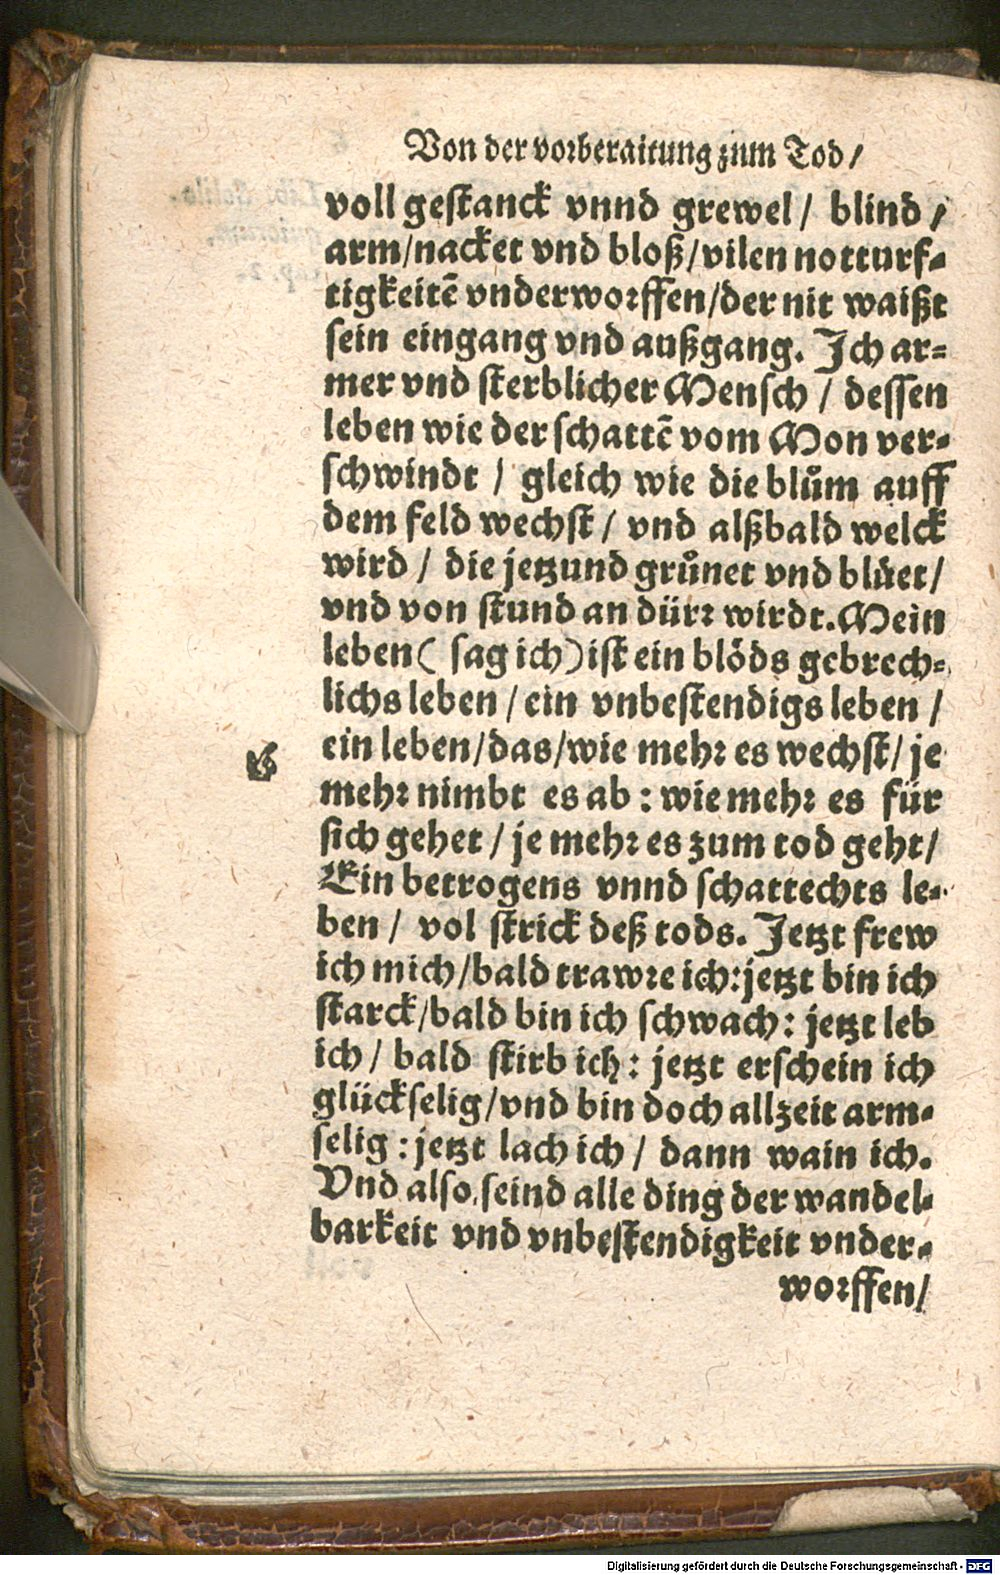 Von der vorberaitung zum Tod/
voll gestanck vnnd grewel/ blind/
arm/nacket vnd bloß/vilen notturf-
tigkeitē vnderworffen/der nit waißt
sein eingang vnd außgang. Jch ar-
mer vnd sterblicher Mensch / dessen
leben wie der schattē vom Mon ver-
schwindt / gleich wie die blům auff
dem feld wechst/ vnd alßbald welck
wird / die jetzund grůnet vnd blůet/
vnd von stund an dürr wirdt. Mein
leben( sag ich) ist ein blöds gebrech-
lichs leben / ein vnbestendigs leben /
ein leben/das/wie mehr es wechst/ je
mehr nimbt es ab : wie mehr es für
sich gehet / je mehr es zum tod geht/
Ein betrogens vnnd schattechts le-
ben / vol strick deß tods. Jetzt frew
ich mich/bald trawre ich: jetzt bin ich
starck/bald bin ich schwach: jetzt leb
ich / bald stirb ich : jetzt erschein ich
glückselig/vnd bin doch allzeit arm-
selig : jetzt lach ich / dann wain ich.
Vnd also seind alle ding der wandel-
barkeit vnd vnbestendigkeit vnder-
worffen/
Digitalisierung gefördert durch die Deutsche Forschungsgemeinschaft - DFG